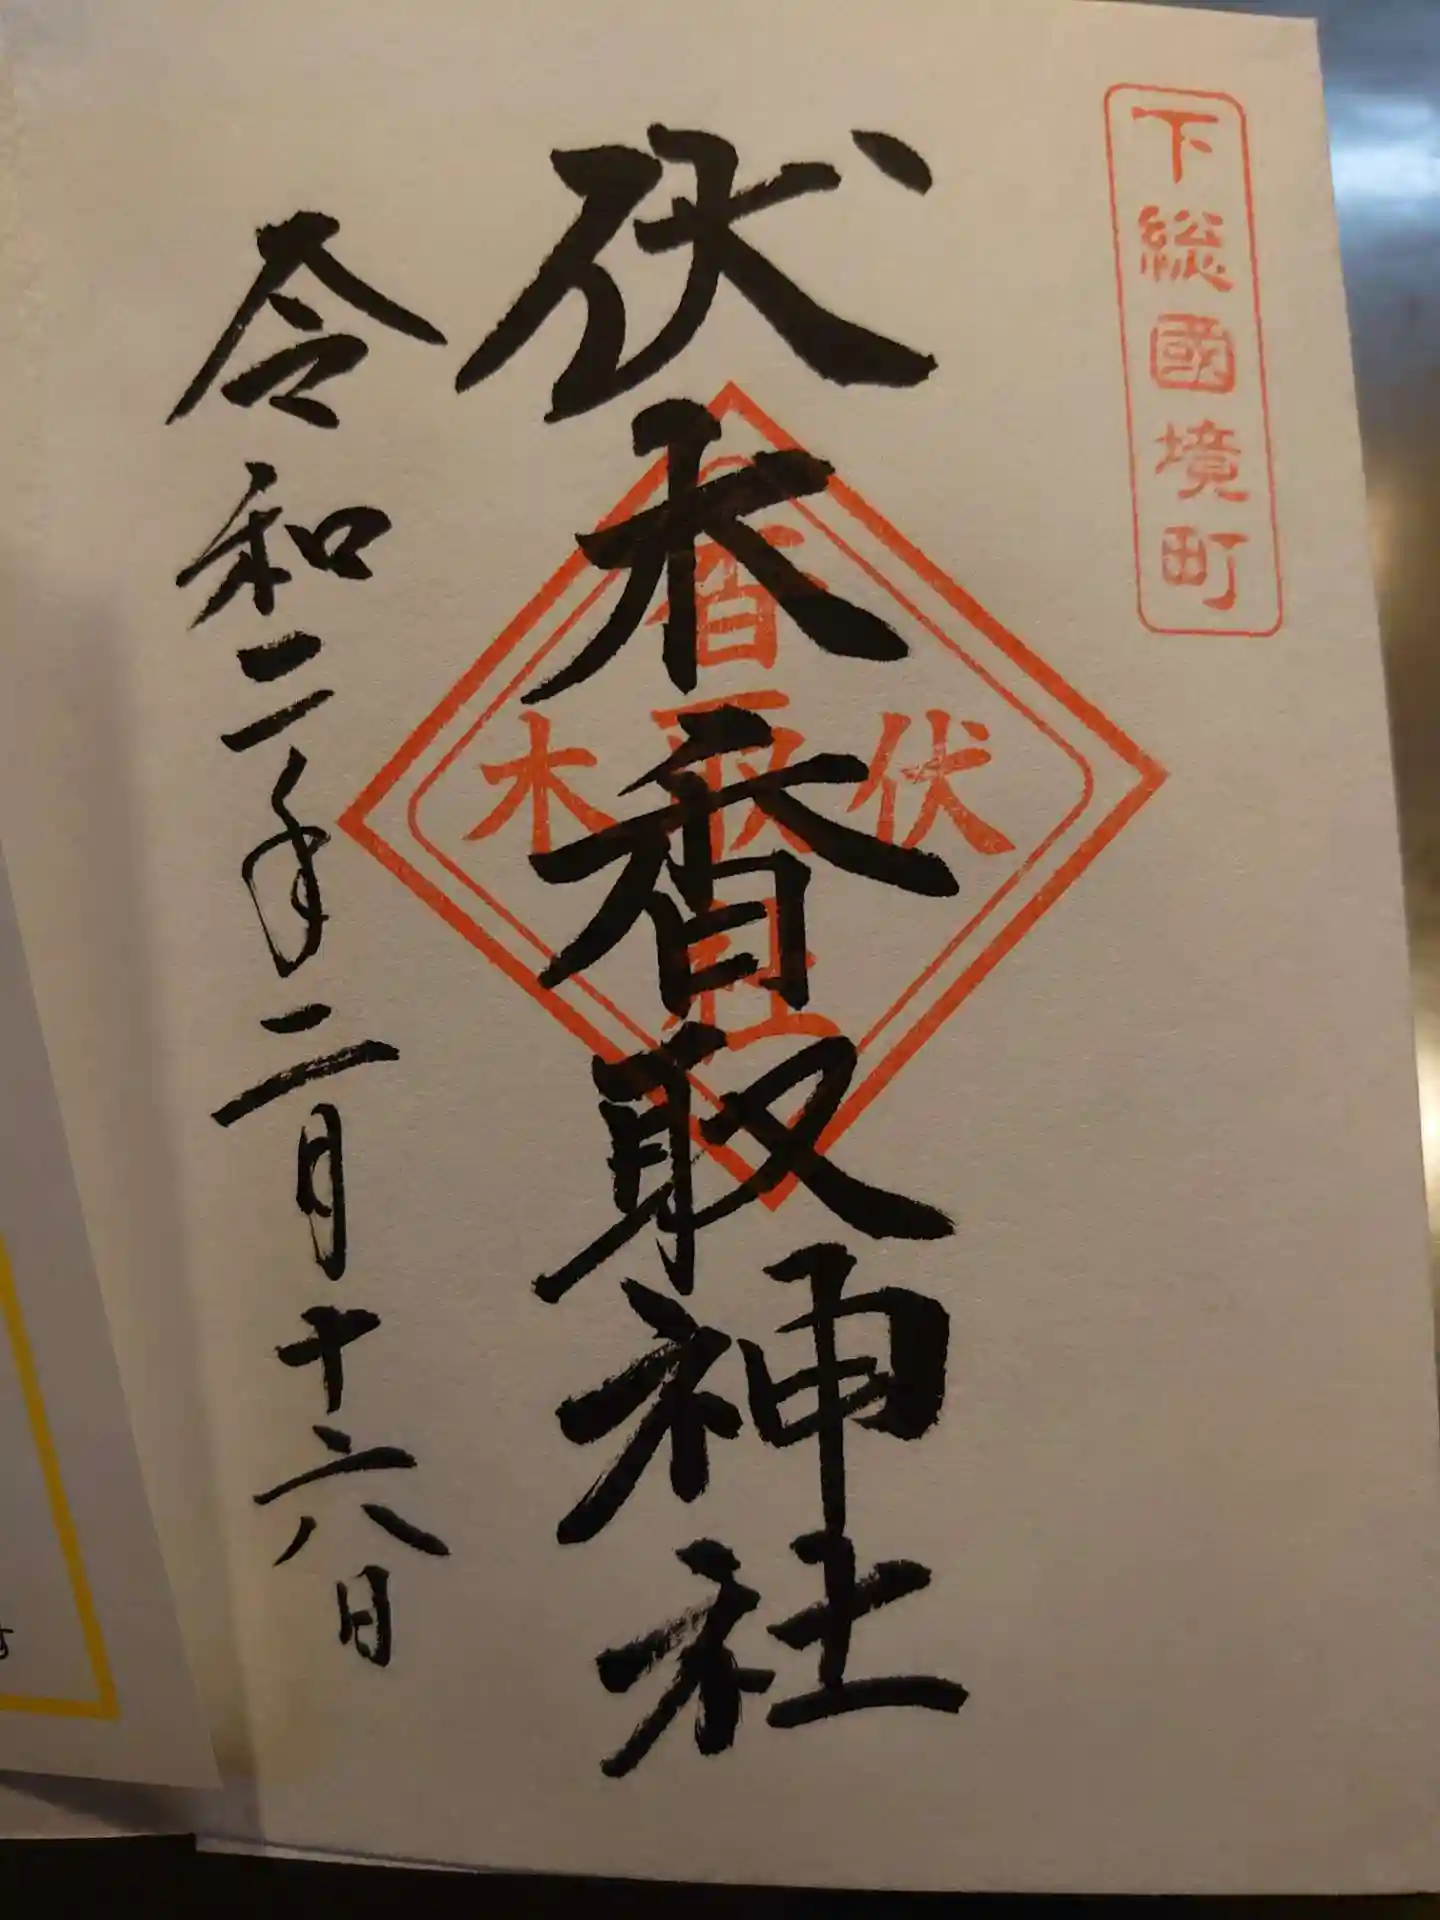 下総國境町
伏木香取神社
伏木
香取
社
令和二年二月十六日